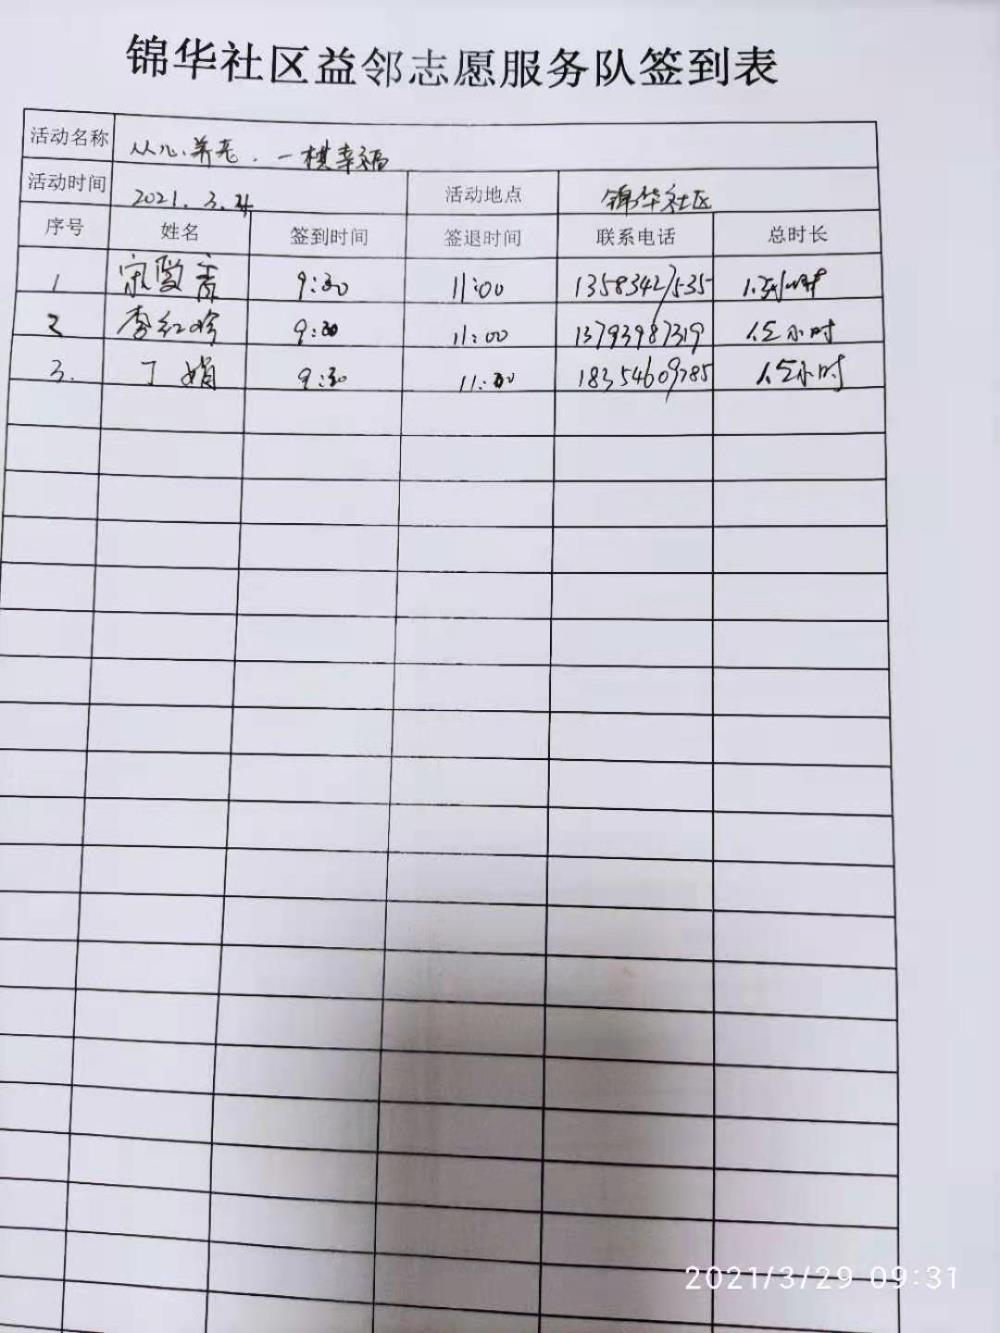 锦华社区益邻志愿服务队签到表
活动名称 从心养老.一棋幸福
活动时间 2021.3.24 活动地点 锦华社区
序号 姓名 签到时间 签退时间 联系电话 总时长
1 宋爱香 9:30 11:00 13583427535 1.5小时
2 李红玲 9:30 11:00 13793987319 1.5小时
3. 丁娟 9:30 11:00 18354609785 1.5小时
2021/3/29 09:31